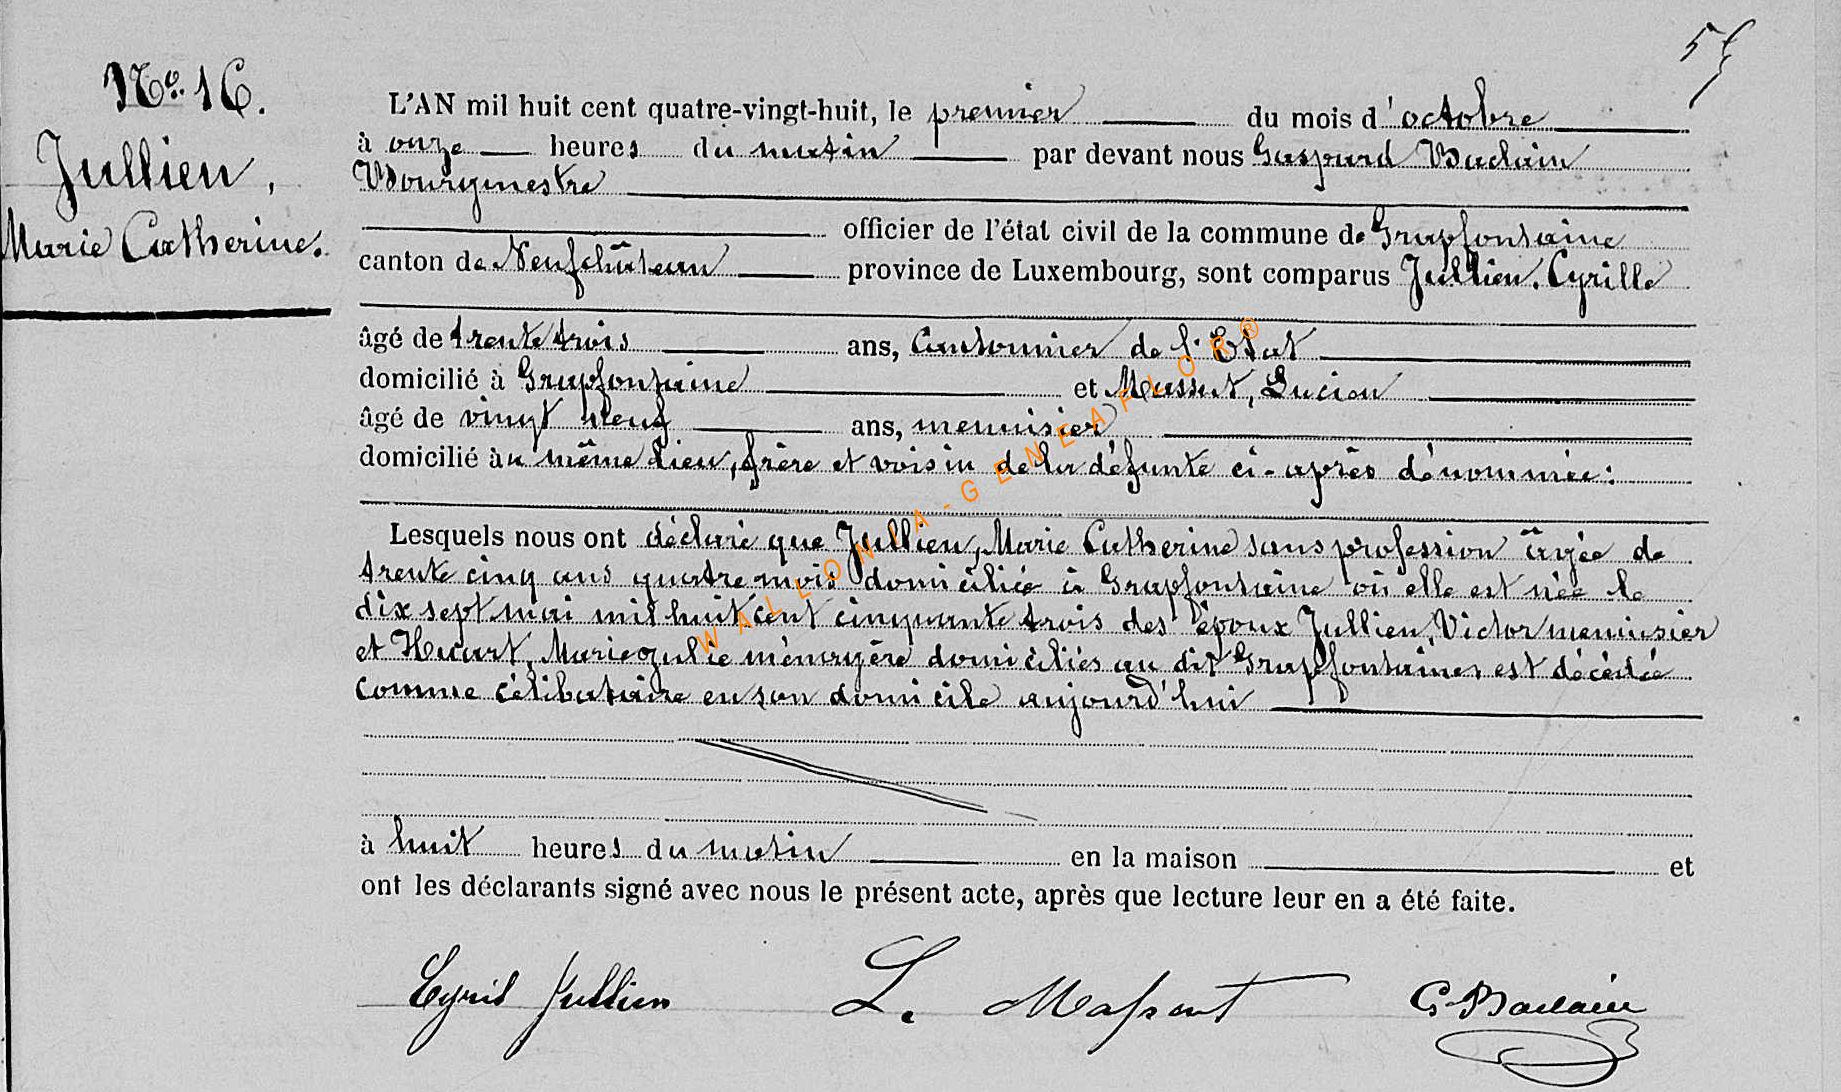 57
Nº 16.
Jullien,
Marie Catherine.
L'AN mil huit cent quatre-vingt-huit, le premier du mois d'octobre
à onze heures du matin par devant nous Gaspard Baclain
Bourgmestre
officier de l'état civil de la commune de Grapfontaine
canton de Neufchâteau province de Luxembourg, sont comparus Jullien, Cyrille
âgé de trente trois ans, Cantonnier de l'Etat
domicilié à Grapfontaine et Massut, Lucien
âgé de vingt neuf ans, menuisier
domicilié au même lieu, frère et voisin de la défunte ci-après dénommée:
Lesquels nous ont déclaré que Jullien, Marie Catherine sans profession âgée de
trente cinq ans quatre mois domiciliée à Grapfontaine où elle est née le
dix sept mai mil huit cent cinquante trois des époux Jullien, Victor menuisier
et Huart, Marie ménagère domiciliés au dit Grapfontaine, est décédée
comme célibataire en son domicile aujourd'hui
à huit heures du matin en la maison et
ont les déclarants signé avec nous le présent acte, après que lecture leur en a été faite.
Cyril Jullien L. Massut G. Baclain
WALLONIA-GENEAFLOR®